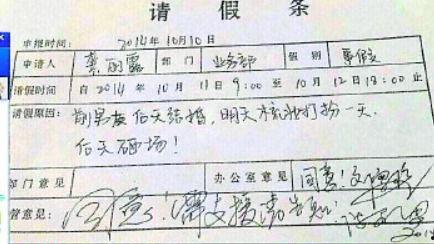 请假条
申报时间: 2014年10月10日
申请人 龚丽露 部门 业务部 假别 事假
请假时间 自 2014 年 10月 11日 9:00 至 10月 12日 18:00 止
请假原因: 前男友后天结婚,明天梳妆打扮一天.
后天砸场!
部门意见 办公室意见 同意!
管意见: 同意!需支援请告知!